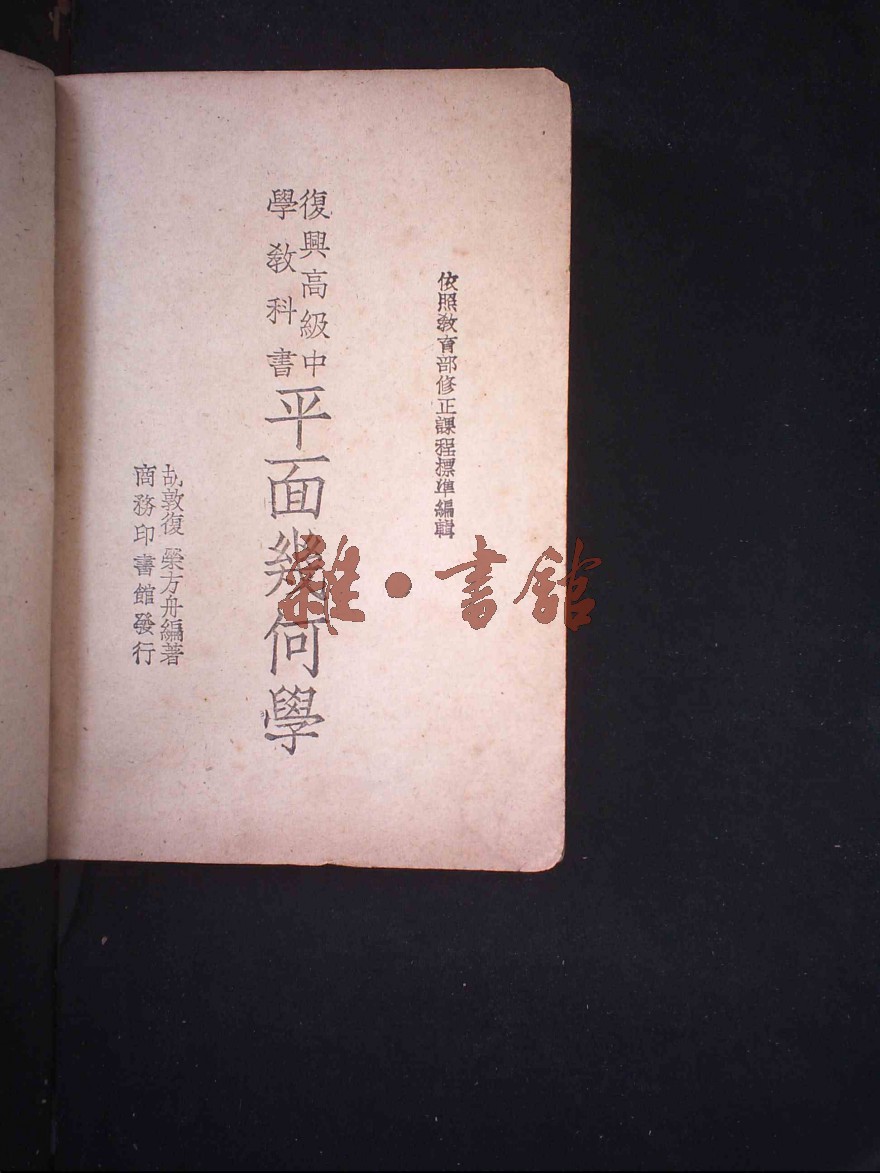 依照教育部修正課程標準編輯
復興高級中
學教科書
平面幾何學
胡敦復 榮方舟編著
商務印書館發行
雜·書館